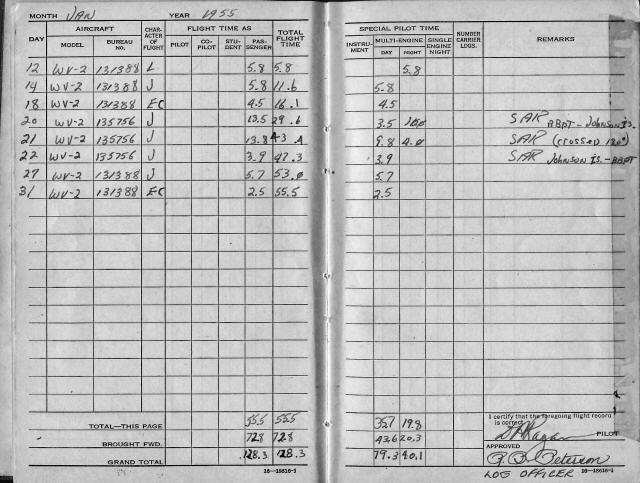 MONTH JAN YEAR 1955
AIRCRAFT CHAR-ACTER OF FLIGHT FLIGHT TIME AS TOTAL FLIGHT TIME
DAY MODEL BUREAU No. PILOT CO-PILOT STU-DENT PAS-SENGER
12 WV-2 131388 L 5.8 5.8
14 WV-2 131388 J 5.8 11.6
18 WV-2 131388 EC 4.5 16.1
20 WV-2 135756 J 13.5 29.6
21 WV-2 135756 J 13.8 43.4
22 WV-2 135756 J 3.9 47.3
27 WV-2 131388 J 5.7 53.0
31 WV-2 131388 EC 2.5 55.5
TOTAL—THIS PAGE 55.5 55.5
BROUGHT FWD. 72.8 72.8
GRAND TOTAL 128.3 128.3
16—18616-1
SPECIAL PILOT TIME NUMBER CARRIER LDGS. REMARKS
INSTRU-MENT MULTI-ENGINE SINGLE ENGINE NIGHT
DAY NIGHT
5.8
5.8
4.5
3.5 10.0 SAR BBPT - JOHNSON IS.
9.8 4.0 SAR (CROSSED 180°)
3.9 SAR JOHNSON IS. - BBPT
5.7
2.5
35.7 19.8
43.6 20.3
79.3 40.1
I certify that the foregoing flight record is correct
PILOT
APPROVED
Peterson
LOG OFFICER 16—18616-1